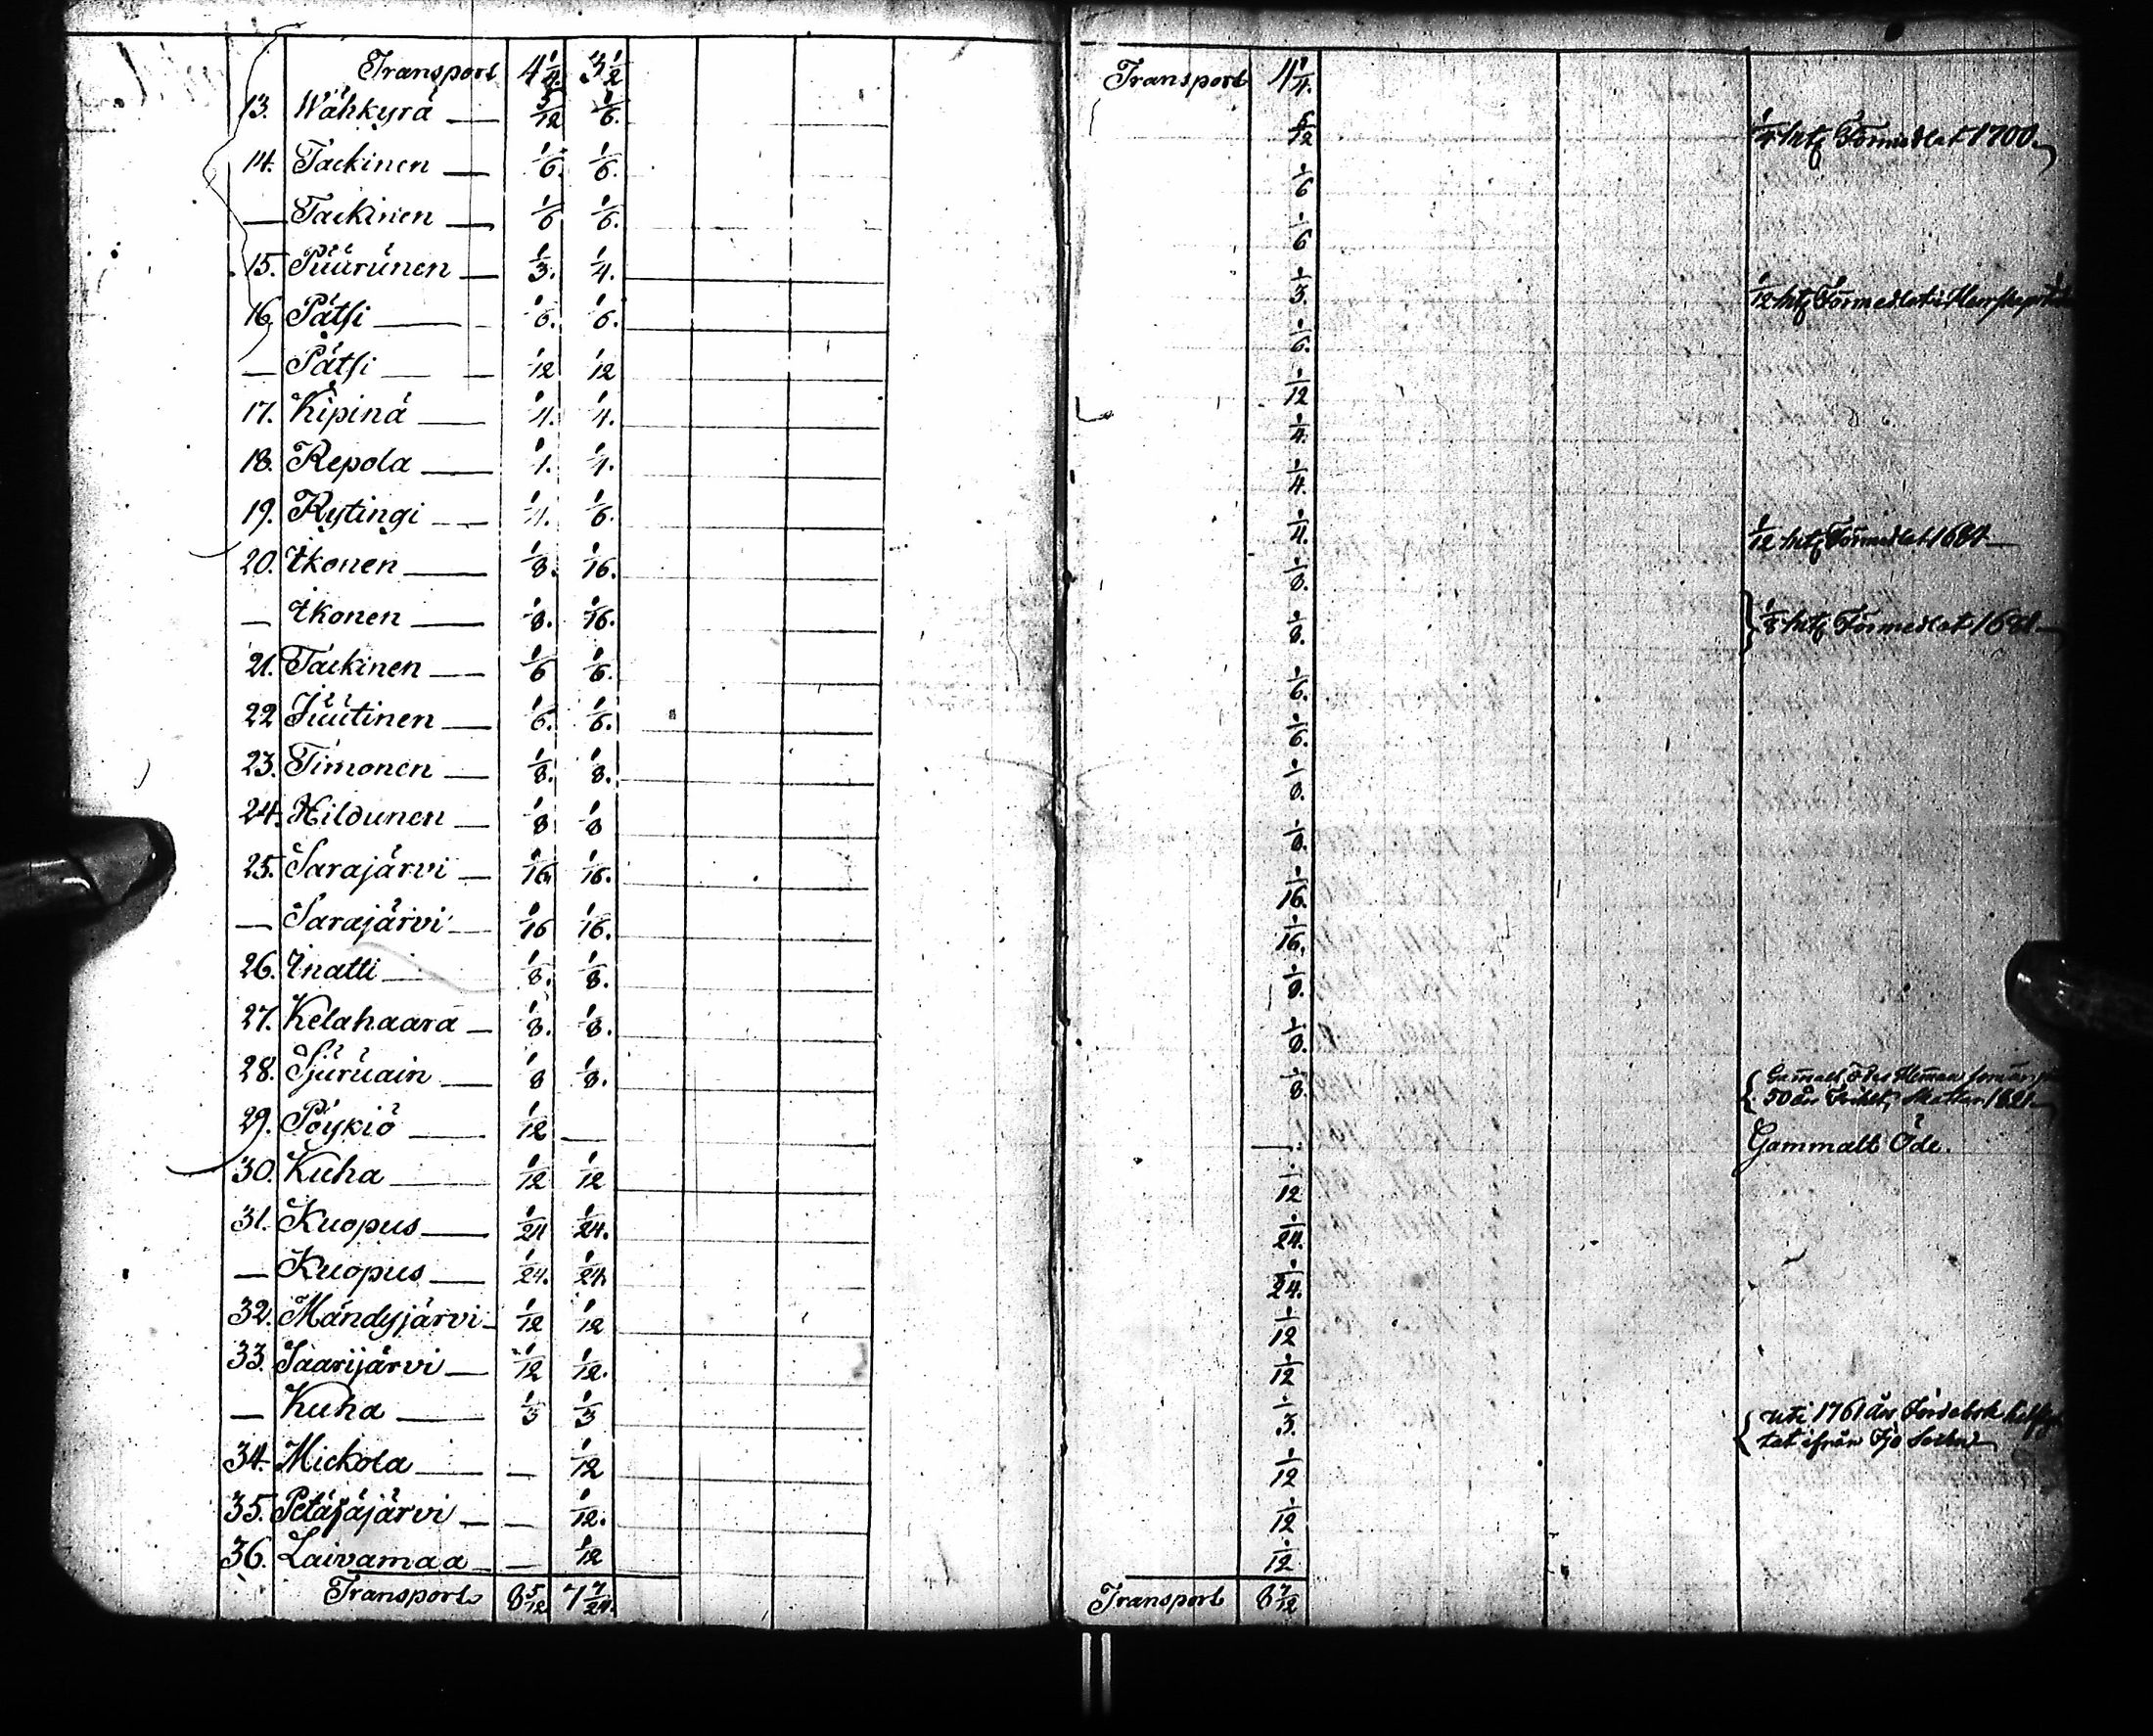 Transport 4 1/4. 3 1/2
13. Wähkyrä — 5/12 1/6.
14. Tackinen — 1/6. 1/6.
— Tackinen — 1/6 1/6.
15. Püürünen — 1/3. 1/4.
16 Pätsi — 1/6. 1/6.
— Pätsi — 1/12 1/12
17. Kipinä — 1/4. 1/4.
18. Repola — 1/4. 1/4.
19. Rytingi — 1/4. 1/6.
20. Ikonen — 1/8. 1/16.
— Ikonen — 1/8. 1/16.
21. Tackinen — 1/6 1/6.
22 Jüütinen — 1/6. 1/6.
23. Timonen — 1/8. 1/8.
24. Hildunen — 1/8 1/8
25. Sarajärvi — 1/16 1/16.
— Sarajärvi — 1/16 1/16.
26. Inatti — 1/8. 1/8.
27. Kelahaara — 1/8. 1/8.
28. Sjüruain — 1/8 1/8.
29. Pöykiö — 1/12 —
30. Kuha — 1/12 1/12
31. Kuopus — 1/24 1/24.
— Kuopus — 1/24. 1/24
32. Mändyjärvi — 1/12 1/12
33. Saarijärvi — 1/12 1/12.
— Kuha — 1/3 1/3
34. Mickola — — 1/12
35. Petäjäjärvi — — 1/12.
36. Laivamaa — — 1/12
Transport 8 5/12 7 7/24.
Transport 4 1/4.
5/12 1/4 htf Förmedlat 1700.
1/6
1/6
1/3. 1/12 htf Förmedlat
1/6.
1/12
1/4.
1/4.
1/4. 1/12 htf Förmedlat 1684
1/8.
1/8. 1/8 htf Förmedlat
1/6.
1/6.
1/8.
1/8.
1/16.
1/16.
1/8.
1/8.
1/8. Gammalt Öde Heman
50 års Frihet,
— Gammalt Öde.
1/12
1/24.
1/24.
1/12
1/12
1/3. uti 1761 års Jordebok
tat ifrån Ijo Sochn
1/12
1/12
1/12
Transport 8 7/12